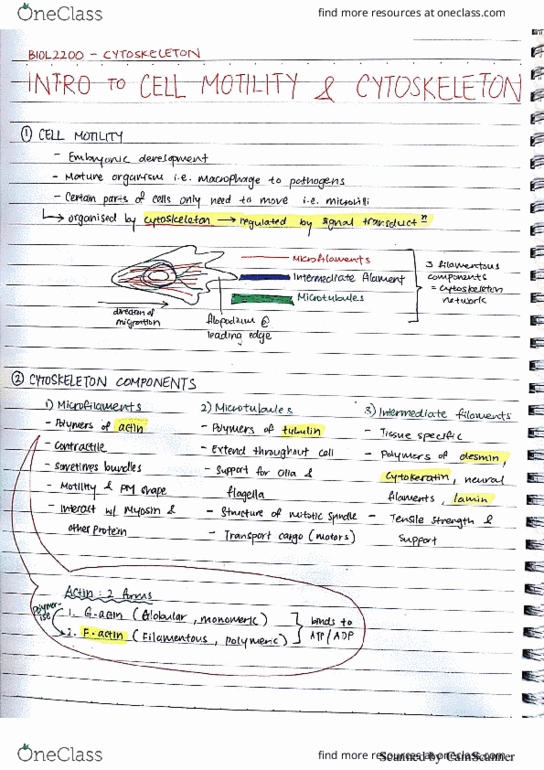 OneClass
find more resources at oneclass.com
BIOL2200 - CYTOSKELETON
INTRO to CELL MOTILITY & CYTOSKELETON
① CELL MOTILITY
- Embryonic development
- Mature organism i.e. macrophage to pathogens
- Certain parts of cells only need to move i.e. microvilli
↳ organised by cytoskeleton → regulated by signal transductⁿ
Microfilaments
Intermediate Filament
Microtubules
3 filamentous
components
= cytoskeleton
network
direction of
migration
filopodium @
leading edge
② CYTOSKELETON COMPONENTS
1) Microfilaments
- Polymers of actin
- Contractile
- Sometimes bundles
- Motility & PM shape
- Interact w/ Myosin &
other protein
2) Microtubules
- Polymers of tubulin
- Extend throughout cell
- Support for cilia &
flagella
- Structure of mitotic spindle
- Transport cargo (motors)
3) Intermediate filaments
- Tissue specific
- Polymers of desmin,
cytokeratin, neural
filaments, lamin
- Tensile strength &
support
Actin: 2 forms
polymer-
ise
1. G-actin (Globular, monomeric)
2. F-actin (Filamentous, polymeric)
binds to
ATP/ADP
OneClass
find more resources at oneclass.com
Scanned by CamScanner